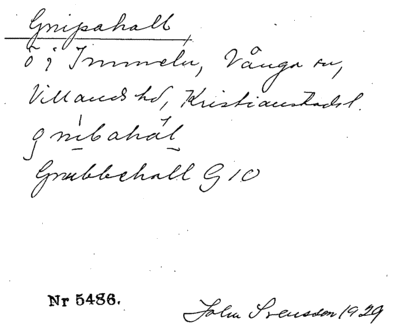 Gnipahall,
ö i Immeln, Vånga sn,
Villands hd, Kristianstads l.
gnibahál
Grubbehall G 10
Nr 5486.
John Svensson 1929